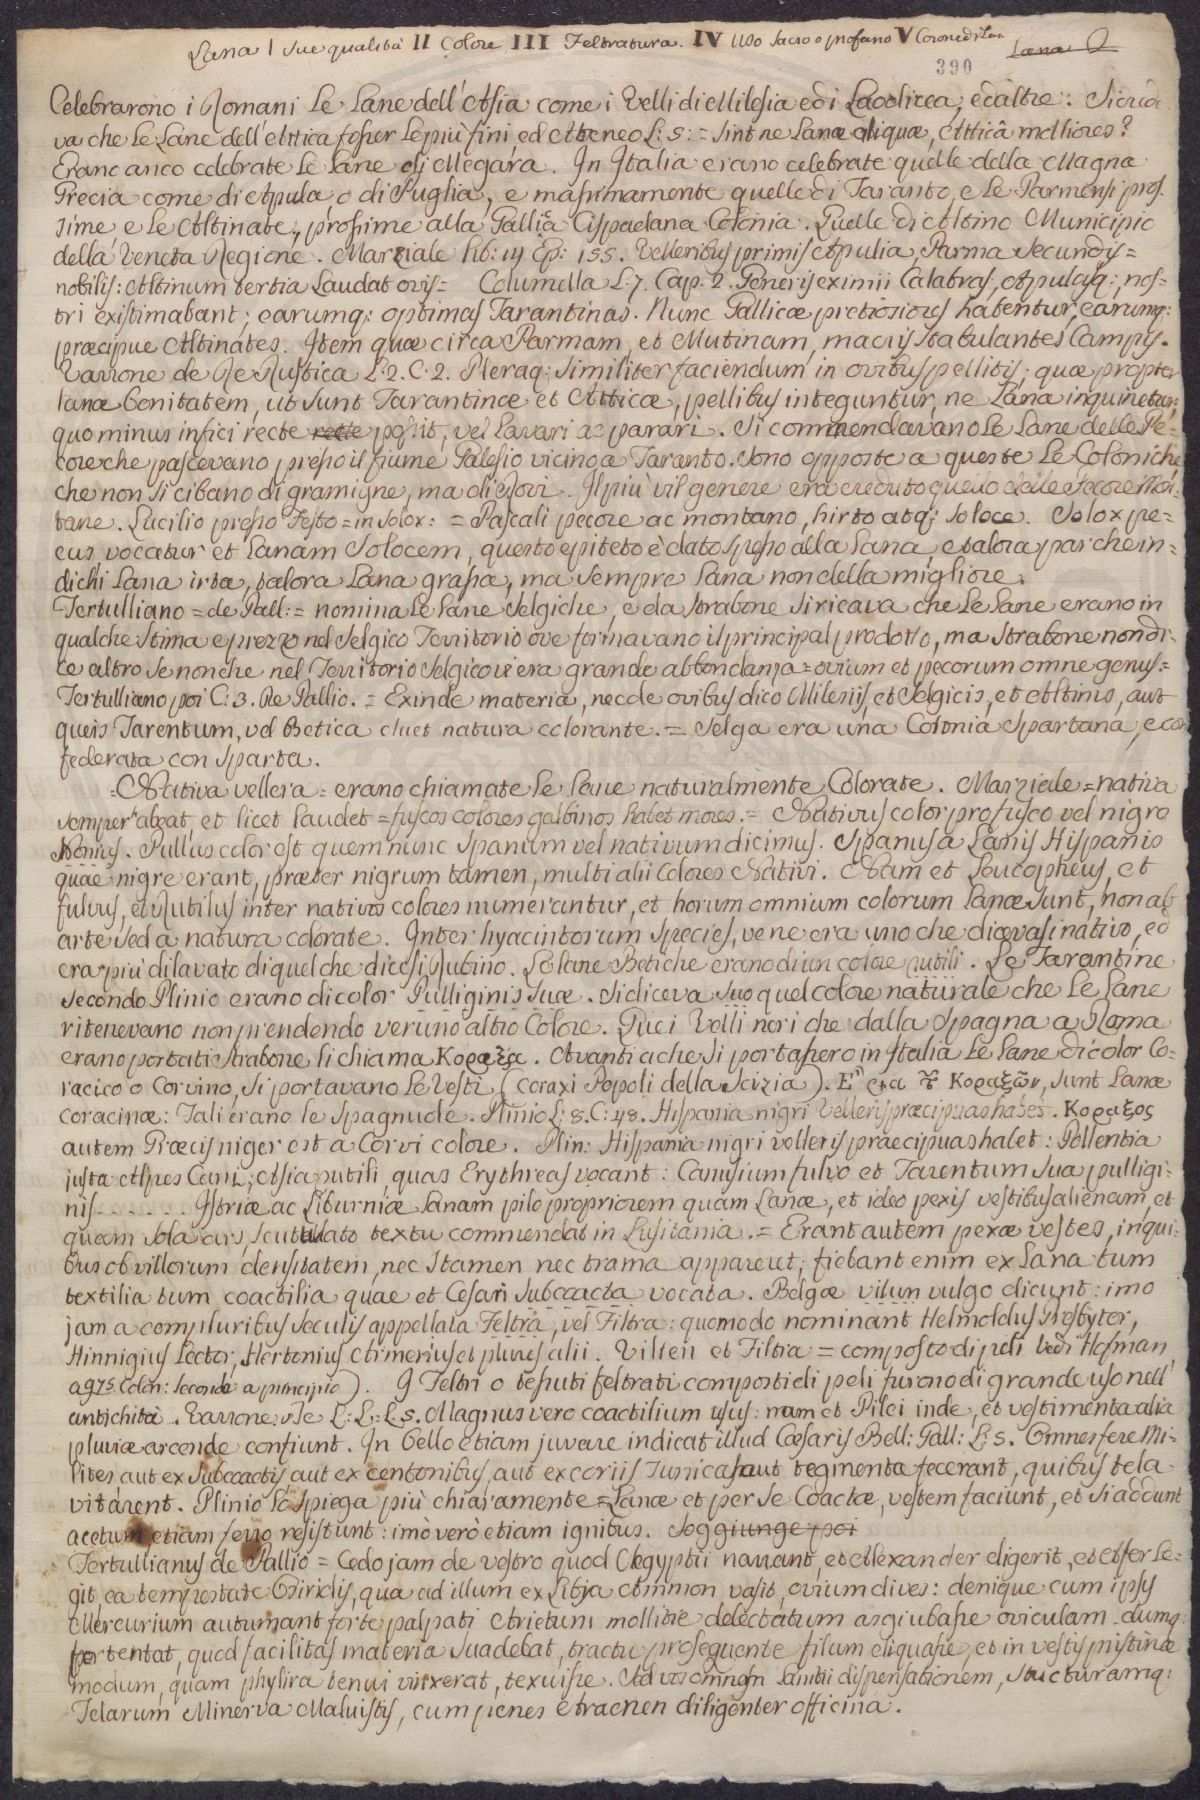 Lana I Sue qualità II Colore III Feltratura. IV Uso sacro o profano V Corone di Lan
Lana
390
Celebrarono i Romani le Lane dell'Asia come i Velli di Milesia ed i Laodicea, ed altre. Si crede
va che le Lane dell'Attica fosser le più fini ed Ateneo L: 5: = sint ne Lanæ aliquæ, Atticâ meliores?
Erano anco celebrate le Lane di Megara. In Italia erano celebrate quelle della Magna
Grecia come di Apula, o di Puglia, e massimamente quelle di Taranto, e le Parmensi pros
sime e le Altinate, prossime alla Gallica Cispadana Colonia. Quelle di Altino Municipio
della Veneta Regione. Marziale lib: 14 Ep: 155. Velleribus primis Apulia, Parma Secundis =
nobilis: Altinum tertia Laudat ovis = Columella L. 7. Cap. 2. Generis eximii Calabras, Apulasq:, nos=
tri existimabant; earumq: optimas Tarantinas. Nunc Gallicæ pretiosiores habentur, earumq:
præcipue Altinates. Item quæ circa Parmam, et Mutinam, macris stabulantes Campis.
Varrone de Re Rustica L. 2. C. 2. Pleraq; similiter faciendum in ovibus pellitis; quæ propter
lanæ bonitatem, ut sunt Tarantinæ et Atticæ, pellibus integuntur, ne Lana inquinetur;
quo minus infici recte recte possit, vel Lavari ac parari. Si commendavano le Lane delle Pe=
core che pascevano presso il fiume Galesio vicino a Taranto. Sono opposte a queste le Coloniche
che non si cibano di gramigne, ma di Rovi. Il più vil genere era creduto quello delle Pecore Mon=
tane. Lucilio presso Festo = in Solox: = Pascali pecore ac montano, hirto atq; soloce. Solox pe=
cus vocatur et Lanam Solocem, questo epiteto è dato spesso alla Lana, e talora par che in=
dichi Lana irta, talora Lana grassa, ma sempre Lana non della migliore.
Tertulliano = de Pall: = nomina le Lane Selgiche, e da Strabone si ricava che le Lane erano in
qualche stima e prezzo nel Selgico Territorio ove formavano il principal prodotto, ma Strabone non di=
ce altro se non che nel Territorio Selgico vi era grande abbondanza = ovium et pecorum omne genus =
Tertulliano poi C. 3. De Pallio. = Exinde materia, nec de ovibus dico Milesiis, et Selgicis, et Altinis, aut
queis Tarentum, vel Betica cluet natura colorante. = Selga era una Colonia Spartana, e con
federata con Sparta.
= Nativa vellera = erano chiamate le Lane naturalmente Colorate. Marziale = nativa
semper habeat, et licet Laudet = fuscos colores galbinos habet mores. = Nativus color pro fusco vel nigro
Nonius. Pullus color est quem nunc Spanum vel nativum dicimus. Spanus a Lanis Hispanis
quae nigre erant, præter nigrum tamen, multi alii Colores Nativi. Nam et Leucopheus, et
fulvus, et Rutilus inter nativos colores numerantur, et horum omnium colorum Lanæ sunt, non ab
arte sed a natura colorate. Inter hyacintorum species, ve ne era uno che dicevasi nativo, ed
era più dilavato di quel che dicesi Rubino. Le lane Betiche erano di un colore rutili. Le Tarantine
secondo Plinio erano di color Pulliginis suæ. Si diceva suo quel colore naturale che le Lane
ritenevano non prendendo veruno altro Colore. Quei Velli neri che dalla Spagna a Roma
erano portati Strabone li chiama Κοραξα. Avanti a che si portassero in Italia le Lane di color Co=
racico o Corvino, si portavano le Vesti (coraxi Popoli della Scizia). Κοραξῶν, sunt Lanæ
coracinæ: Tali erano le Spagnuole. Plinio L: 8. C: 48. Hispania nigri velleris præcipuas habet. Κοραξος
autem Græcis niger est a Corvi colore. Plin: Hispania nigri velleris præcipuas habet: Pollentia
justa Alpes Cani; Asia rutili, quas Erythreas vocant: Canusium fulvo et Tarentum suæ pulligi=
nis. . . . . . . Istriæ ac Liburniæ Lanam pilo propriorem quam Lanæ, et ideo pexis vestibus alienam, et
quam sola ars, scutulato textu commendat in Lusitania. = Erant autem pexæ vestes, in qui=
bus ob villorum densitatem, nec Stamen nec trama appareret; fiebant enim ex Lana tum
textilia tum coactilia quae et Cesari Subcoacta vocata. Belgæ vilum vulgo dicunt: imo
jam a compluribus seculis appellata Feltra, vel Filtra: quomodo nominant Helmoldus Presbyter,
Hinnigius Lector, Hertonius Aimerius et plures alii. Vilten et Filtra = composto di peli vedi Hofman
a 975. Colon: seconda a principio). I Feltri o tessuti feltrati composti di peli furono di grande uso nell'
antichità. Varrone: De L: L: L 5. Magnus vero coactilium usus: nam et Pilei inde, et vestimenta alia
pluviæ arcende confiunt. In bello etiam juvare indicat illud Cæsaris Bell: Gall: L: 5. Omnes fere Mi=
lites aut ex Subcoactis aut ex centonibus, aut ex coriis Tunicas aut tegmenta fecerant, quibus tela
vitarent. Plinio lo spiega più chiaramente = Lanæ et per se Coactæ, vestem faciunt, et si addunt
acetum etiam ferro resistunt: imò verò etiam ignibus. Soggiunge poi
Tertullianus de Pallio = Cedo jam de vestro quod Ægyptii narrant, et Alexander digerit, et Afer le=
git, ea tempestate Osiridis, qua ad illum ex Libya Ammon vasit, ovium dives: denique cum ipsis
Mercurium autumant forte palpati Arietum mollitie delectatum asgiubasse oviculam. dumq:
pertentat, quod facilitas materia suadebat, tractu prosequente filum eliquasse, et in vestis pristinæ
modum, quam phylira tenui vinxerat, texuisse. Sed vos omnem Lanitii dispensationem, structuramq:
Telarum Minerva Maluistis, cum penes Aracnen diligenter officina.